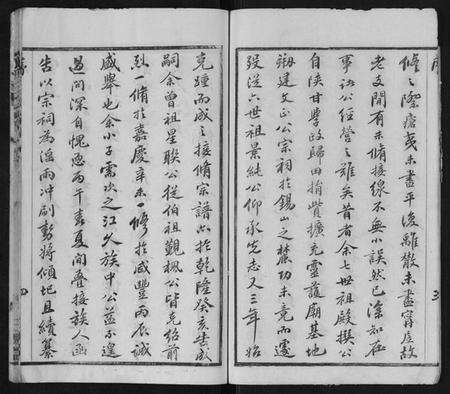 修之際瘡痍未盡平復離散未盡寧居故
老文間有未脩接線不無小誤然已淦知在
事諸公經營之難矣昔者余七世祖殿撰公
自陝甘學政歸田捐貲擴充靈護廟基地
剏建文正公宗祠於錫山之麓功未竟而遽
歿從六世祖景純公仰承先志又三年始
克踵而成之接脩宗譜六於乾隆癸亥告成
嗣余曾祖星聯公從伯祖觀楓公皆克紹前
烈一脩於嘉慶辛未一修於咸豐丙辰誠
盛舉也余小子需次之江久族中公益不遑
過問深自愧恧丙午春夏間疊接族人函
告以宗祠為淫雨冲刷勢將傾圮且續纂